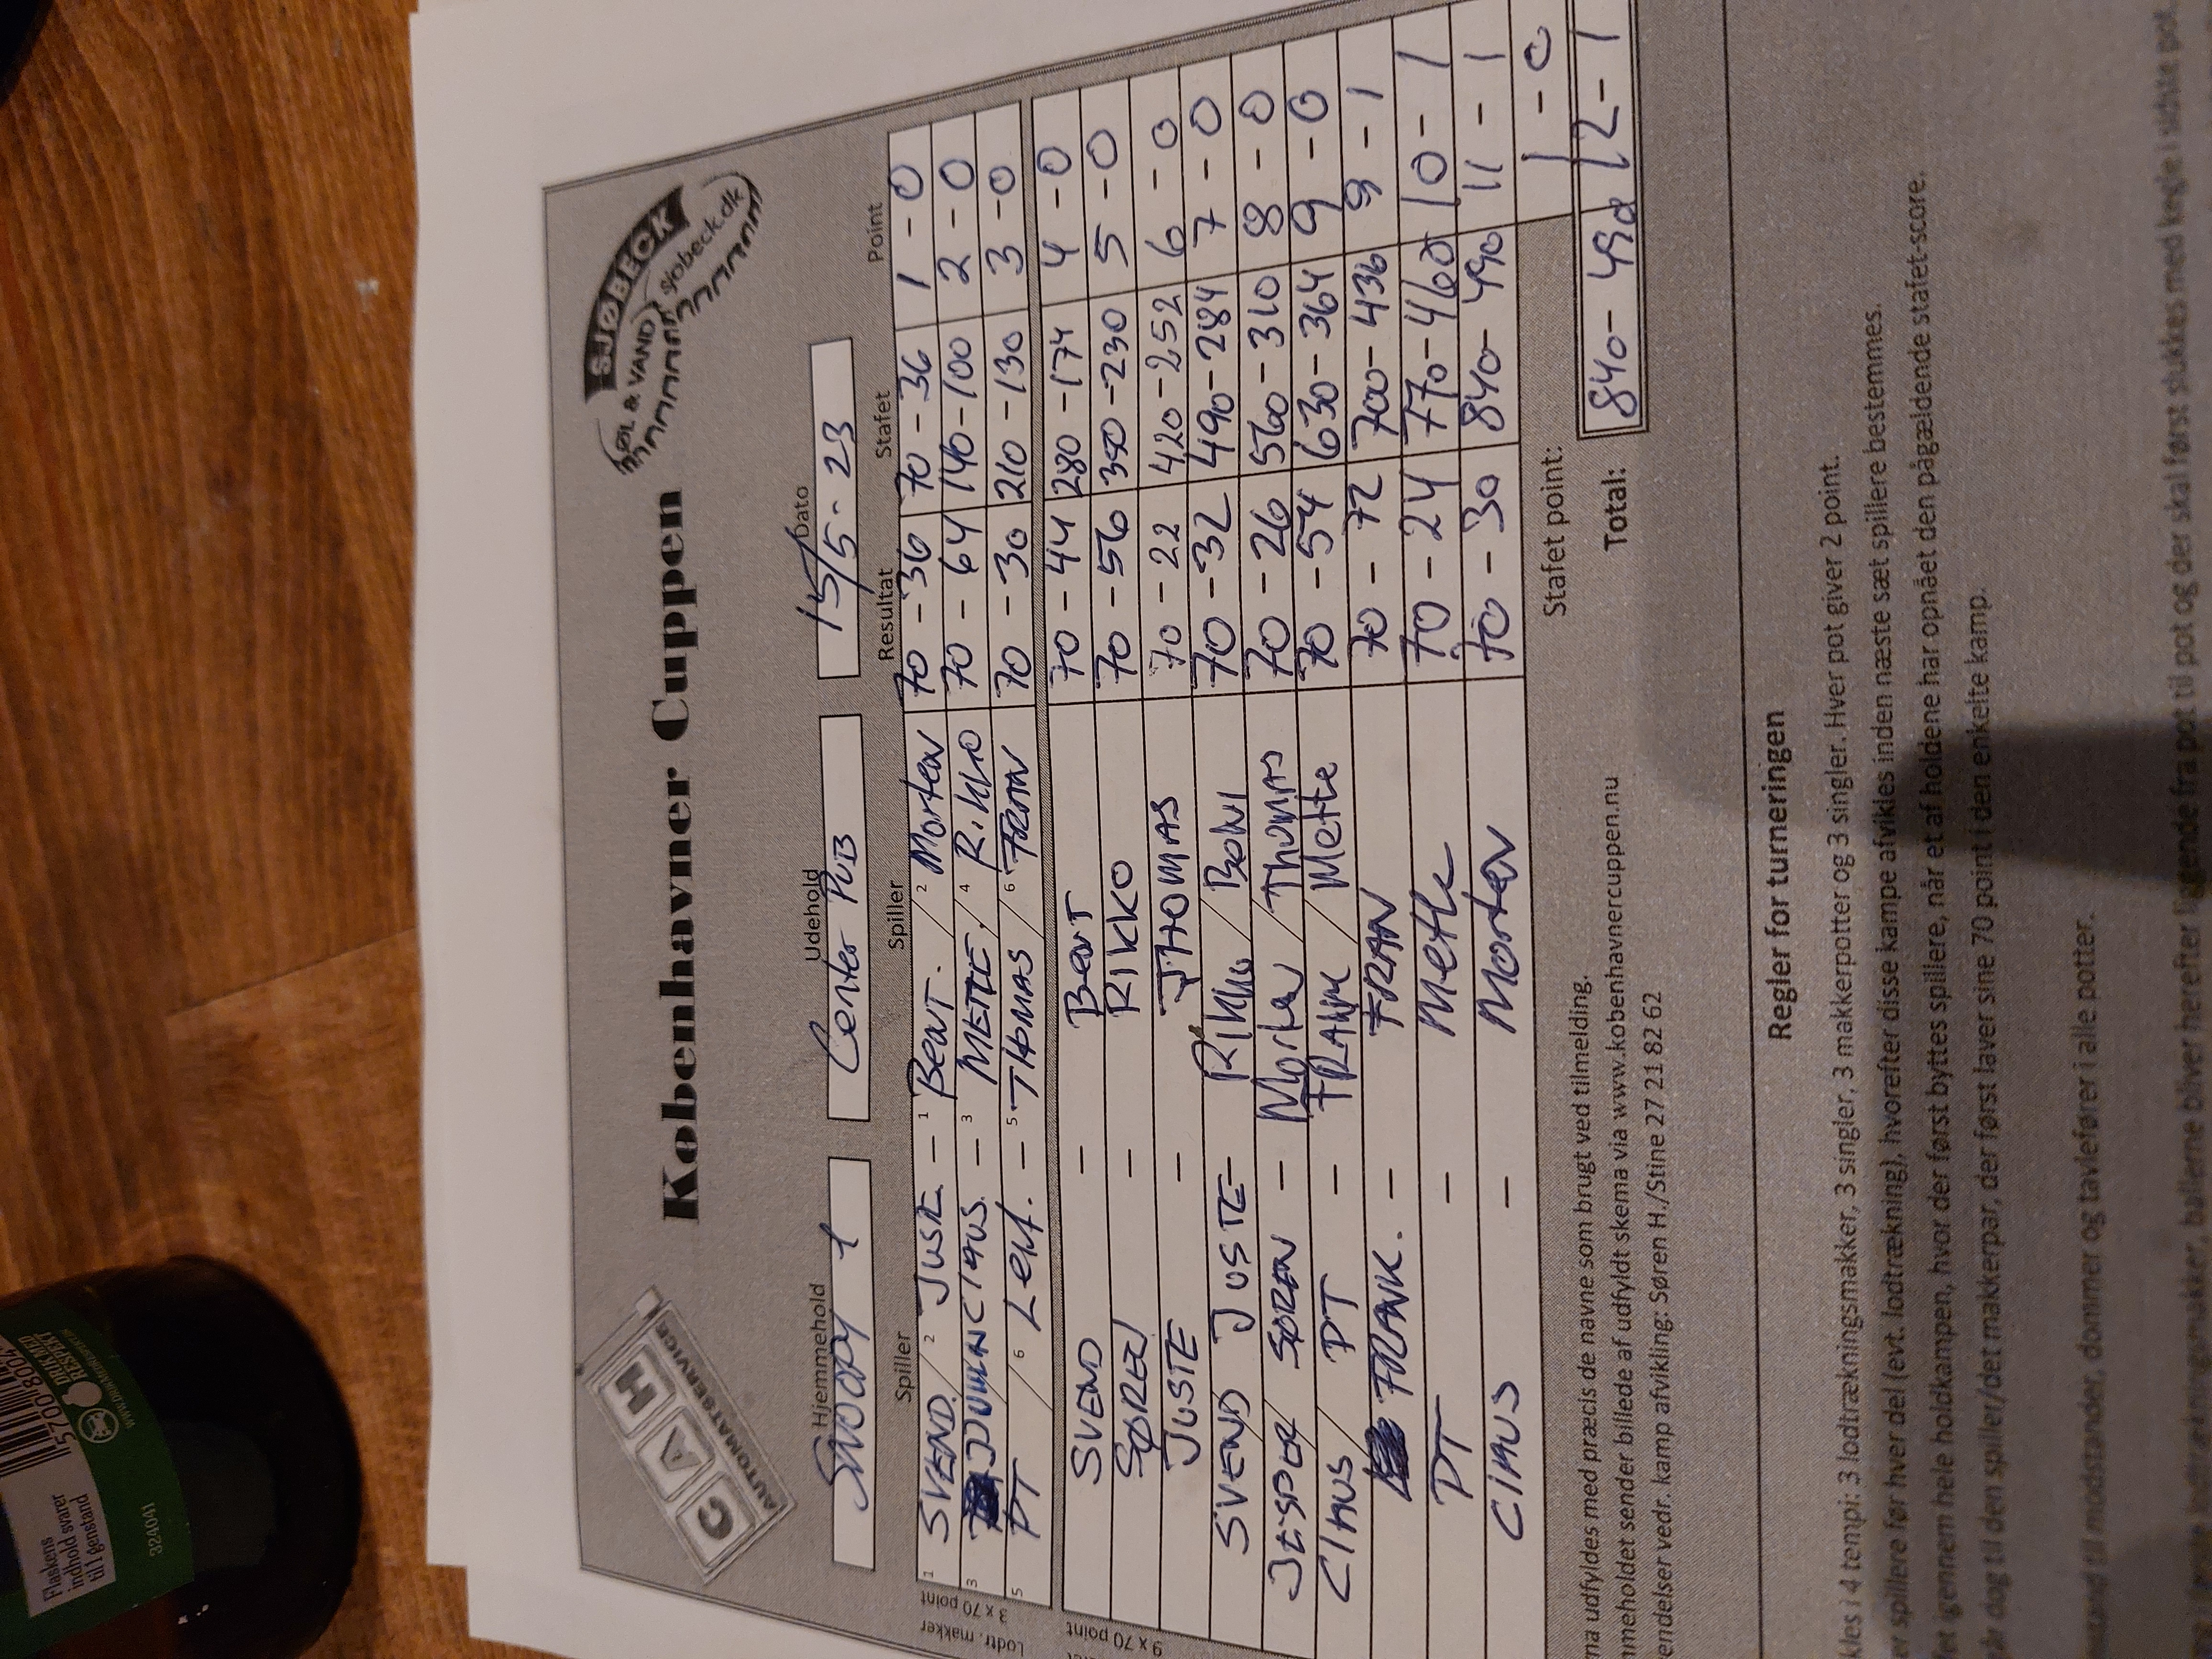 CAH
AUTOMATSERVICE
Københavner Cuppen
SJØBECK
ØL & VAND
sjobeck.dk
Hjemmehold Udehold Dato
Snoopy 1 Center PUB 15/5-23
Spiller Spiller Resultat Stafet Point
Lodtr. makker
3 x 70 point
1 SVEND / 2 JUSTE - 1 Bent / 2 Morten 70 - 36 70 - 36 1 - 0
3 / CIMUS - 3 METTE / 4 Rikko 70 - 64 140 - 100 2 - 0
5 PT / 6 Leif. - 5 THOMAS / 6 FRAN 70 - 30 210 - 130 3 - 0
9 x 70 point
SVEND - Bent 70 - 44 280 - 174 4 - 0
SØREN - RIKKO 70 - 56 350 - 230 5 - 0
JUSTE - THOMAS 70 - 22 420 - 252 6 - 0
SVEND / JUSTE - Rikko / 70 - 32 490 - 284 7 - 0
JESPER / SØREN - Morten / THOMAS 70 - 26 560 - 310 8 - 0
CIMUS / PT - / Mette 70 - 54 630 - 364 9 - 0
FRANK. - FRAN 70 - 72 700 - 436 9 - 1
PT - Mette 70 - 24 770 - 460 10 - 1
CIMUS - Morten 70 - 30 840 - 490 11 - 1
Stafet point: 1 - 0
Total: 840 - 490 12 - 1
udfyldes med præcis de navne som brugt ved tilmelding.
mmeholdet sender billede af udfyldt skema via www.kobenhavnercuppen.nu
endelser vedr. kamp afvikling: Søren H./Stine 27 21 82 62
Regler for turneringen
kles i 4 tempi: 3 lodtrækningsmakker, 3 singler, 3 makkerpotter og 3 singler. Hver pot giver 2 point.
er spillere før hver del (evt. lodtrækning), hvorefter disse kampe afvikles inden næste sæt spillere bestemmes.
fet igennem hele holdkampen, hvor der først byttes spillere, når et af holdene har opnået den pågældende stafet-score.
år dog til den spiller/det makkerpar, der først laver sine 70 point i den enkelte kamp.
til modstander, dommer og tavlefører i alle potter.
makker, ballerne bliver herefter liggende fra pot til pot og der skal først stukkes med kegle i sidste pot.
Flaskens
indhold svarer
til 1 genstand
324041
DRIK MED
RESPEKT